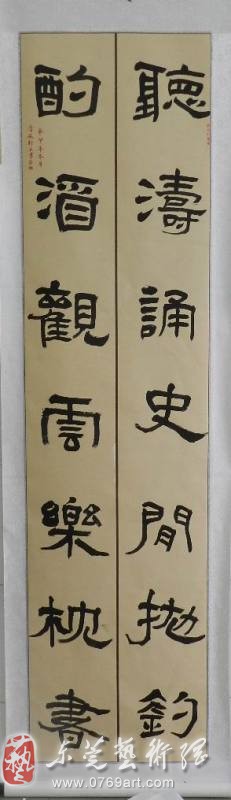 聽濤誦史閒拋釣
酌酒觀雲樂枕書
藝 东莞藝術網
www.0769art.com